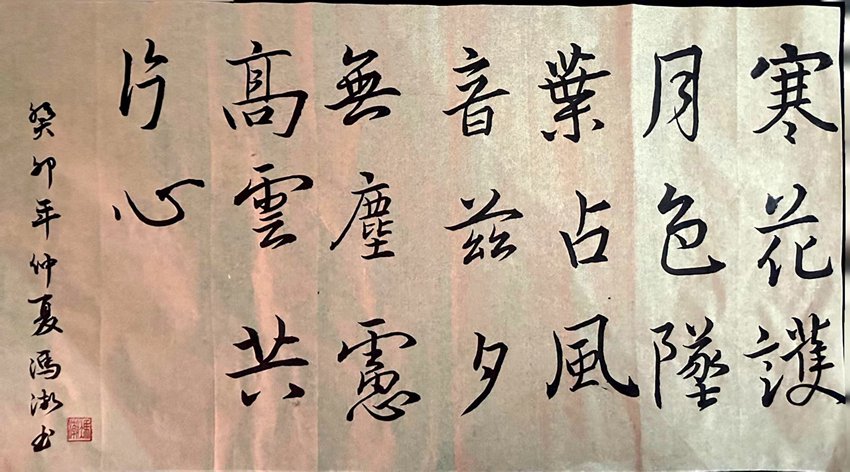 寒花護
月色墜
葉占風
音兹夕
無塵慮
高雲共
片心
癸卯年仲夏馮湖书